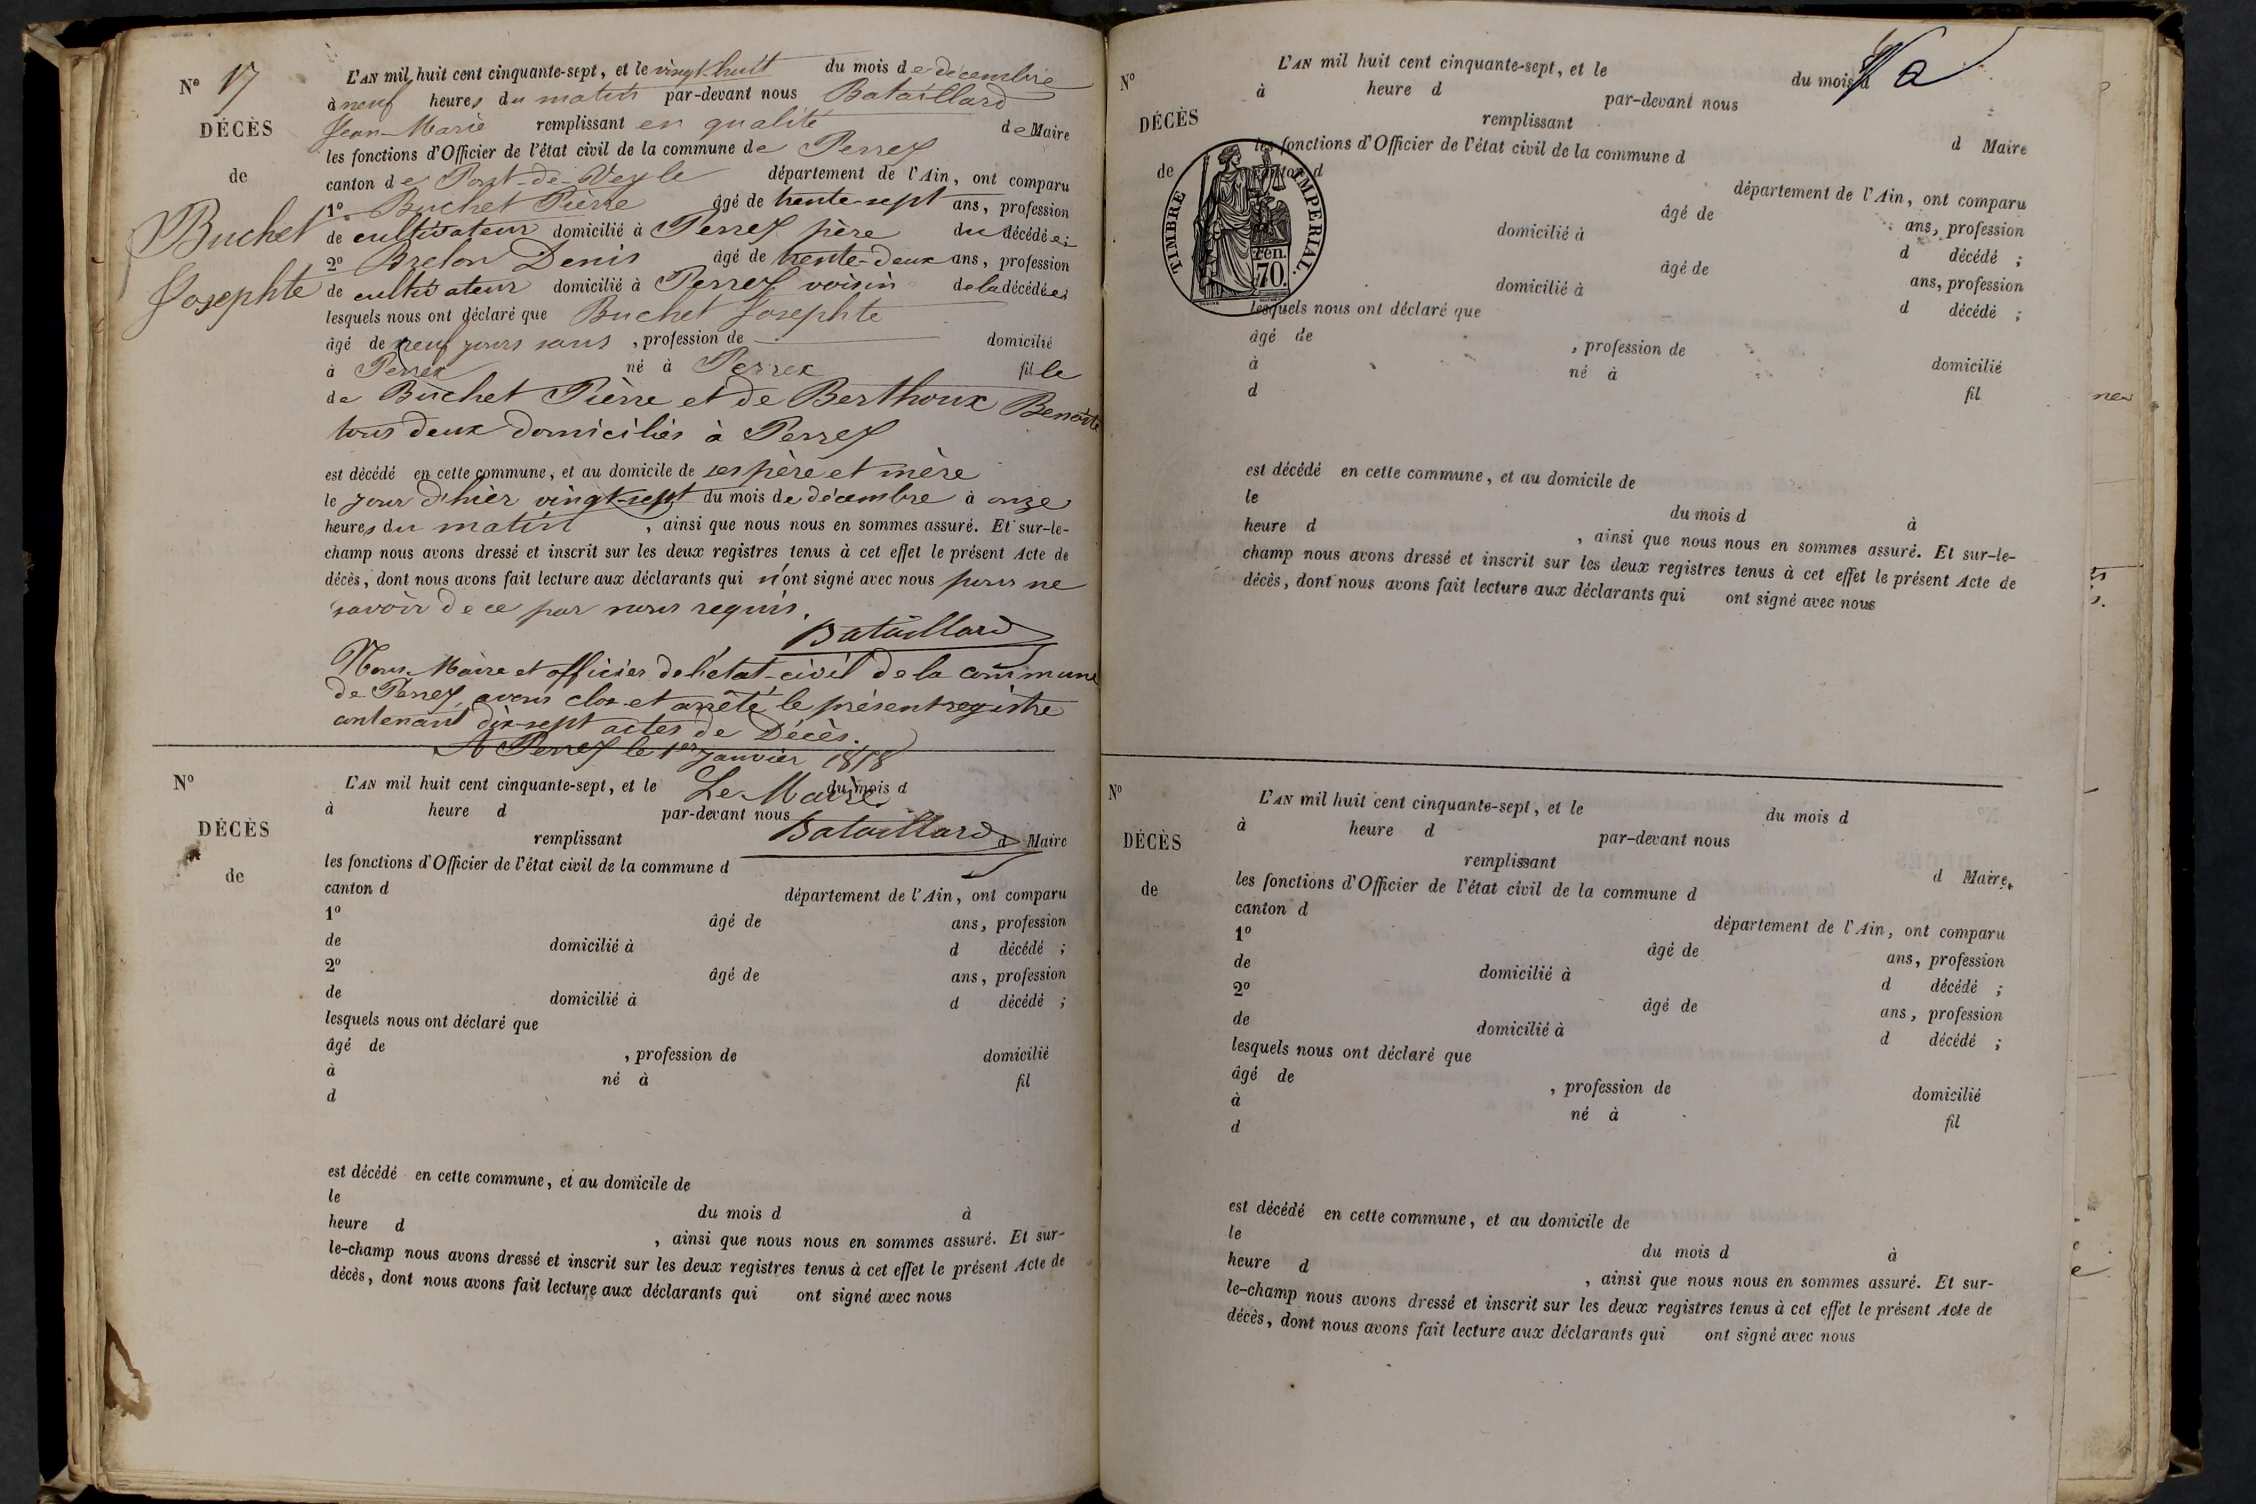 N° 17
DÉCÈS
de
Buchet
Josephte
L'AN mil huit cent cinquante-sept, et le vingt-huit du mois de décembre
à neuf heures du matin par-devant nous Bataillard
Jean-Marie remplissant en qualité de Maire
les fonctions d'Officier de l'état civil de la commune de Perrex
canton de Pont-de-Veyle département de l'Ain, ont comparu
1° Buchet Pierre âgé de trente-sept ans, profession
de cultivateur domicilié à Perrex père du décédée;
2° Breton Denis âgé de trente-deux ans, profession
de cultivateur domicilié à Perrex voisin de la décédée;
lesquels nous ont déclaré que Buchet Josephte
âgé de neuf jours sans , profession de domicilié
à Perrex né à Perrex fille
de Buchet Pierre et de Berthoux Benoite
tous deux domiciliés à Perrex
est décédé en cette commune, et au domicile de ses père et mère
le jour d'hier vingt-sept du mois de décembre à onze
heures du matin , ainsi que nous nous en sommes assuré. Et sur-le-
champ nous avons dressé et inscrit sur les deux registres tenus à cet effet le présent Acte de
décès, dont nous avons fait lecture aux déclarants qui n'ont signé avec nous pour ne
savoir de ce par nous requis.
Bataillard
Nous Maire et officier de l'état-civil de la commune
de Perrex, avons clos et arrêté le présent registre
contenant dix-sept actes de Décès.
A Perrex le 1er Janvier 1858
Le Maire
Bataillard
N°
DÉCÈS
de
L'AN mil huit cent cinquante-sept, et le du mois d
à heure d par-devant nous
remplissant d Maire
les fonctions d'Officier de l'état civil de la commune d
canton d département de l'Ain, ont comparu
1° âgé de ans, profession
de domicilié à d décédé ;
2° âgé de ans, profession
de domicilié à d décédé ;
lesquels nous ont déclaré que
âgé de , profession de domicilié
à né à fil
d
est décédé en cette commune, et au domicile de
le du mois d à
heure d , ainsi que nous nous en sommes assuré. Et sur-
le-champ nous avons dressé et inscrit sur les deux registres tenus à cet effet le présent Acte de
décès, dont nous avons fait lecture aux déclarants qui ont signé avec nous
N°
DÉCÈS
de
L'AN mil huit cent cinquante-sept, et le du mois d
à heure d par-devant nous
remplissant d Maire
les fonctions d'Officier de l'état civil de la commune d
canton d département de l'Ain, ont comparu
TIMBRE IMPERIAL.
70.
âgé de ans, profession
domicilié à d décédé ;
âgé de ans, profession
domicilié à d décédé ;
lesquels nous ont déclaré que
âgé de , profession de domicilié
à né à fil
d
est décédé en cette commune, et au domicile de
le du mois d à
heure d , ainsi que nous nous en sommes assuré. Et sur-le-
champ nous avons dressé et inscrit sur les deux registres tenus à cet effet le présent Acte de
décès, dont nous avons fait lecture aux déclarants qui ont signé avec nous
N°
DÉCÈS
de
L'AN mil huit cent cinquante-sept, et le du mois d
à heure d par-devant nous
remplissant d Maire
les fonctions d'Officier de l'état civil de la commune d
canton d département de l'Ain, ont comparu
1° âgé de ans, profession
de domicilié à d décédé ;
2° âgé de ans, profession
de domicilié à d décédé ;
lesquels nous ont déclaré que
âgé de , profession de domicilié
à né à fil
d
est décédé en cette commune, et au domicile de
le du mois d à
heure d , ainsi que nous nous en sommes assuré. Et sur-
le-champ nous avons dressé et inscrit sur les deux registres tenus à cet effet le présent Acte de
décès, dont nous avons fait lecture aux déclarants qui ont signé avec nous